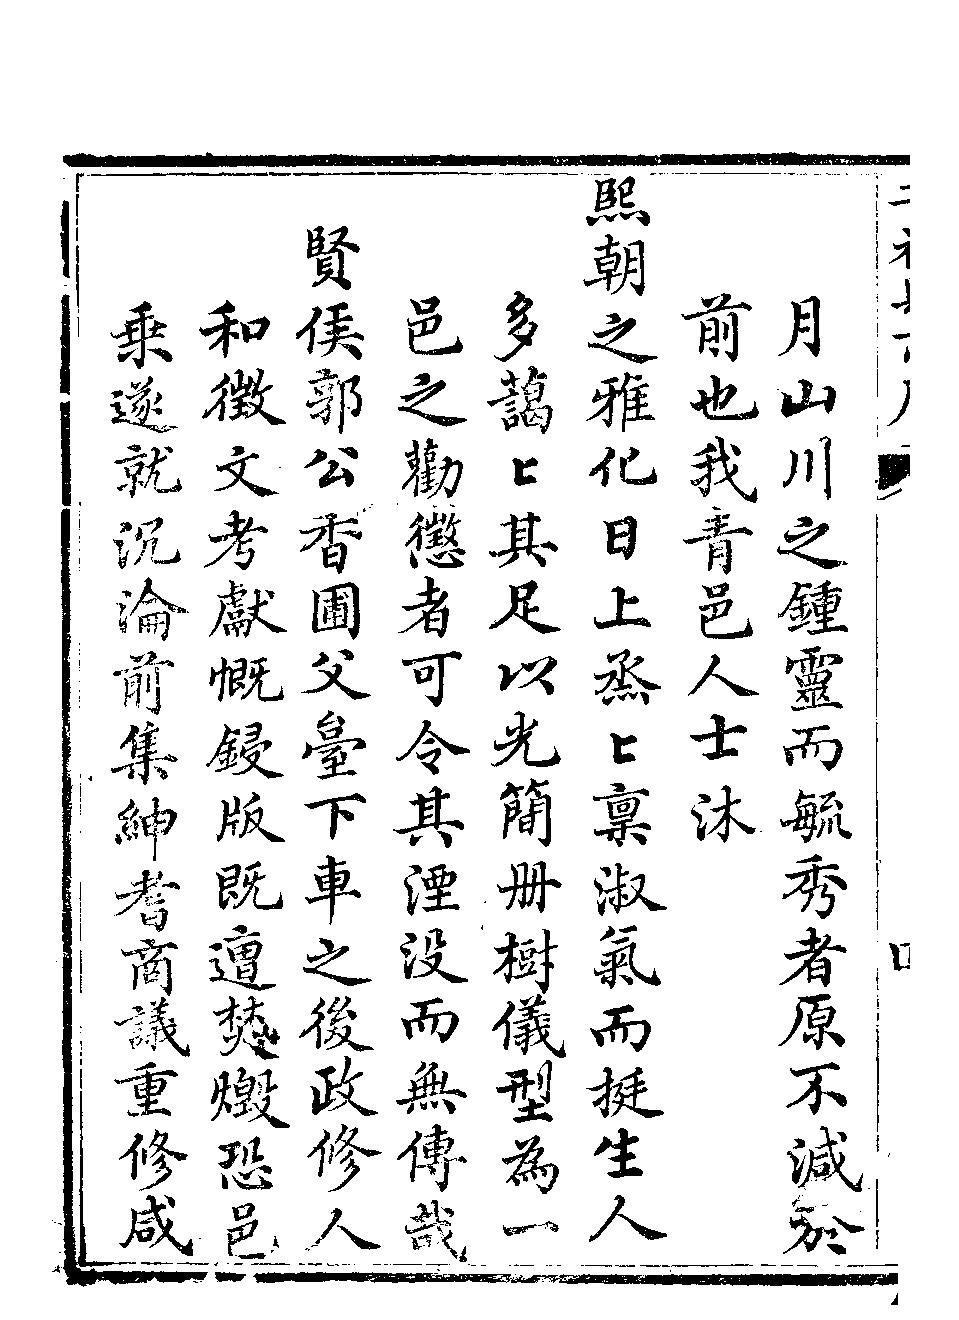 月山川之鍾靈而毓秀者原不減於
前也我青邑人士沐
熙朝之雅化日上烝〻稟淑氣而挺生人
多藹〻其足以光簡册樹儀型為一
邑之勸懲者可令其湮没而無傳哉
賢侯郭公香圃父臺下車之後政修人
和徵文考獻慨鋟版既遭焚燬恐邑
乗遂就沉淪前集紳耆商議重修咸